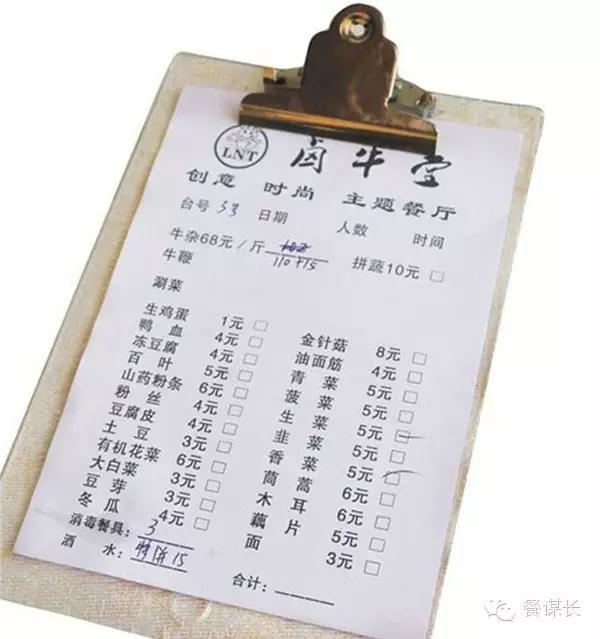 LNT 卤牛堂
创意 时尚 主题餐厅
台号 33 日期 人数 时间
牛杂68元/斤 110+15 拼蔬10元 □
牛鞭
涮菜
生鸡蛋 1元 □ 金针菇 8元 □
鸭血 4元 □ 油面筋 4元 □
冻豆腐 4元 □ 青菜 5元 □
百叶 5元 □ 菠菜 5元 □
山药粉条 6元 □ 生菜 5元 □
粉丝 4元 □ 韭菜 5元 □
豆腐皮 4元 □ 香菜 5元 □
土豆 3元 □ 茼蒿 6元 □
有机花菜 6元 □ 木耳 6元 □
大白菜 3元 □ 藕片 5元 □
豆芽 3元 □ 面 3元 □
冬瓜 4元 □
消毒餐具: 3
酒水: 15
合计:
餐谋长